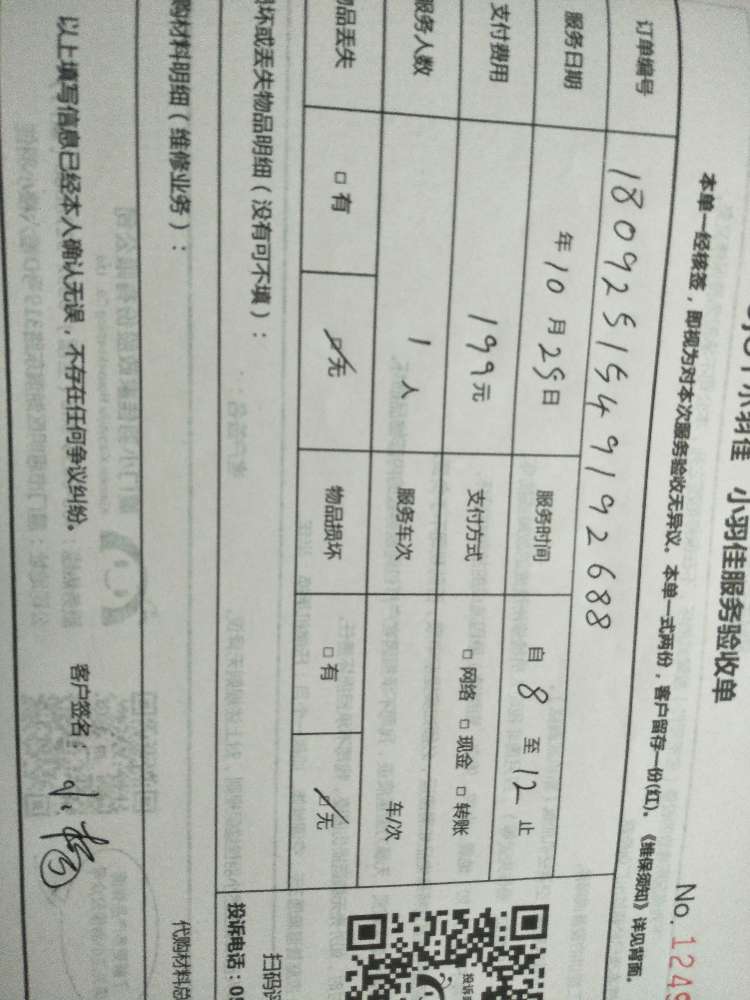 小羽佳 小羽佳服务验收单
No. 124
本单一经核签，即视为对本次服务验收无异议。本单一式两份，客户留存一份(红)。《维保须知》详见背面。
订单编号 180925154919 2688
服务日期 年 10 月 25 日 服务时间 自 8 至 12 止
支付费用 199 元 支付方式 □ 网络 □ 现金 □ 转账
服务人数 1 人 服务车次 车/次
物品丢失 □ 有 □ 无 物品损坏 □ 有 □ 无
损坏或丢失物品明细（没有可不填）：
投诉电话：05
购材料明细（维修业务）：
代购材料总
以上填写信息已经本人确认无误，不存在任何争议纠纷。 客户签名：